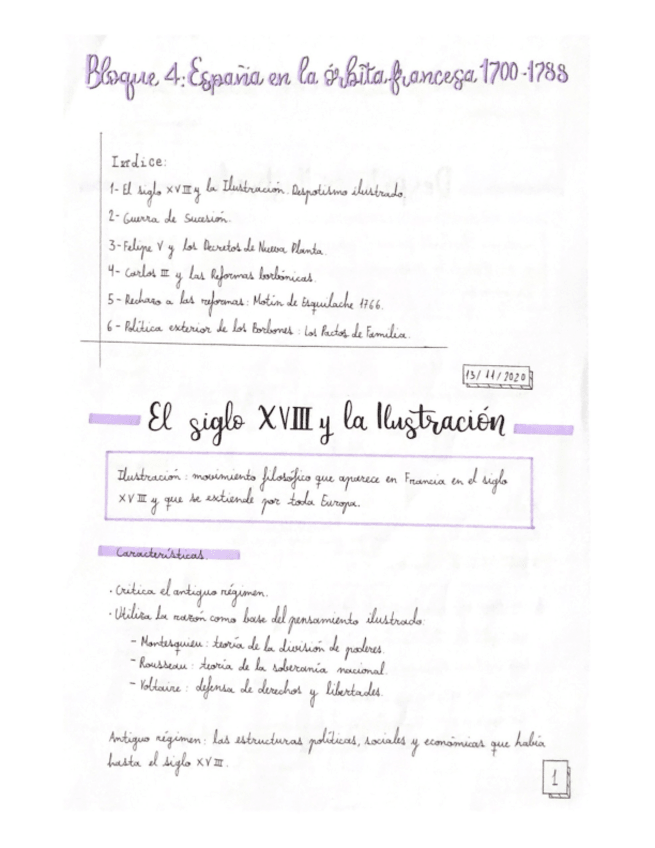 Bloque 4: España en la órbita francesa 1700-1788
Índice:
1- El siglo XVIII y la Ilustración. Despotismo ilustrado.
2- Guerra de Sucesión.
3- Felipe V y los Decretos de Nueva Planta.
4- Carlos III y las Reformas borbónicas.
5- Rechazo a las reformas: Motín de Esquilache 1766.
6- Política exterior de los Borbones: Los Pactos de Familia.
13/11/2020
El siglo XVIII y la Ilustración
Ilustración: movimiento filosófico que aparece en Francia en el siglo
XVIII y que se extiende por toda Europa.
Características.
· Critica el antiguo régimen.
· Utiliza la razón como base del pensamiento ilustrado:
- Montesquieu: teoría de la división de poderes.
- Rousseau: teoría de la soberanía nacional.
- Voltaire: defensa de derechos y libertades.
Antiguo régimen: las estructuras políticas, sociales y económicas que había
hasta el siglo XVIII.
1